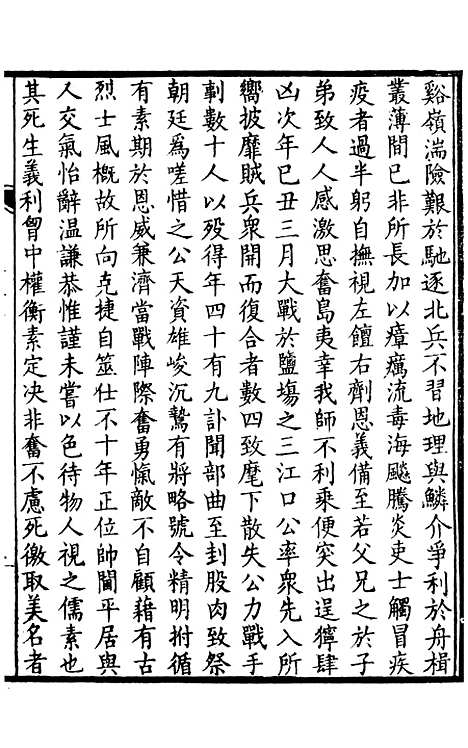 谿嶺湍險艱於馳逐北兵不習地理與鱗介爭利於舟楫
叢薄間已非所長加以瘴癘流毒海颷騰炎吏士觸冒疾
疫者過半躬自撫視左饘右劑恩義備至若父兄之於子
弟致人人感激思奮島夷幸我師不利乘便突出逞獰肆
凶次年已丑三月大戰於鹽塲之三江口公率衆先入所
嚮披靡賊兵衆開而復合者數四致麾下散失公力戰手
剚數十人以殁得年四十有九訃聞部曲至刲股肉致祭
朝廷爲嗟惜之公天資雄峻沉鷙有將略號令精明拊循
有素期於恩威兼濟當戰陣際奮勇愾敵不自顧藉有古
烈士風槪故所向克捷自筮仕不十年正位帥閫平居與
人交氣怡辭温謙恭惟謹未嘗以色待物人視之儒素也
其死生義利胷中權衡素定决非奮不慮死徼取美名者